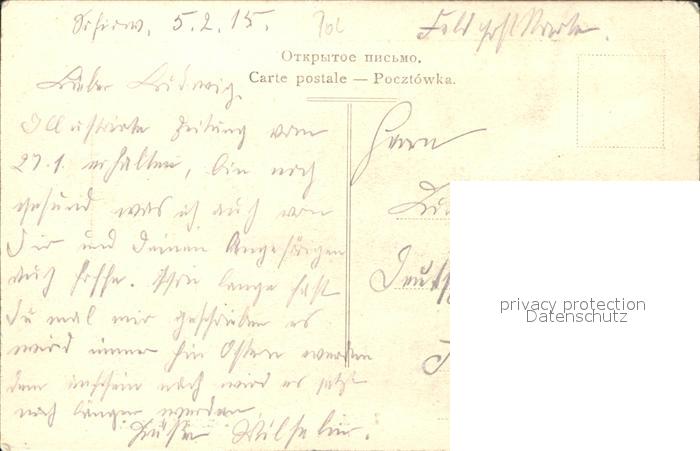 5.2.15. Feldpostkarte.
Открытое письмо.
Carte postale — Pocztówka.
Lieber Ludwig,
Illustrirte Zeitung vom
27.1. erhalten, bin noch
gesund was ich auch von
Dir und Deinen Angehörigen
auch hoffe. Schon lange hast
Du mal mir geschrieben es
wird immer hin Ostern werden
dem nach wird es jetzt
noch länger werden.
Grüße Wilhelm.
Herrn
privacy protection
Datenschutz